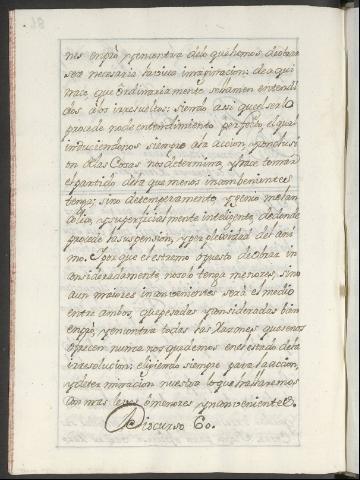 nes en pro y en contra de lo que hemos de obrar
ser necesaria la viva imaginacion: de aqui
nace que ordinariamente se llamen entendi
dos a los irresueltos: siendo assi que el serlo
procede no de entendimiento perfecto, el qual
induciendonos siempre a la accion, y conclusi
on de las Cosas nos determina, y hace tomar
el partido de lo que menos inconbenientes
tenga; sino de temperamento, y genio melan
colico, y superficialmente inteligente, de donde
procede la suspension, y perplexidad del ani
mo. Y por que el estremo opuesto de obrar in
consideradamente no solo tenga menores, sino
aun maiores inconvenientes será el medio
entre ambos, que pesadas y consideradas bien
en pro, y en contra todas las Razones que se nos
ofrecen nunca nos quedemos en el estado de la
irresolucion; eligiendo siempre para la accion,
y determinacion nuestra lo que hallaremos
con mas leves ó menores ynconvenientes.
Discurso 60.